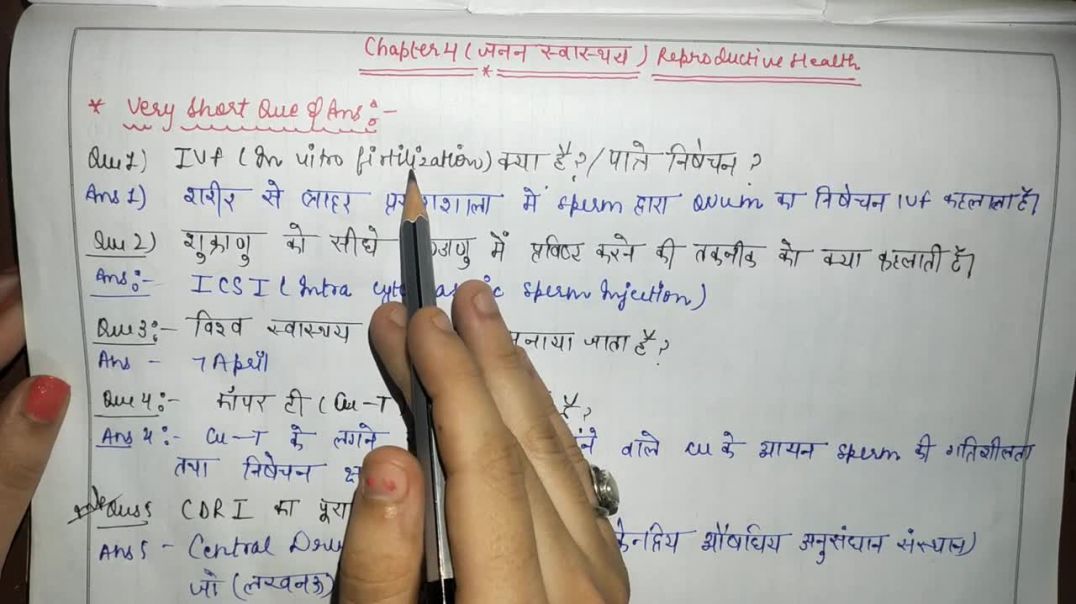 Chapter 4 (जनन स्वास्थय) Reproductive Health
* Very Short Que & Ans :-
Que 1) IVF (In vitro fertilization) क्या है? / पात्रे निषेचन ?
Ans 1) शरीर से बाहर प्रयोगशाला में sperm द्वारा ovum का निषेचन IVF कहलाता है।
Que 2) शुक्राणु को सीधे में प्रविष्ट करने की तकनीक को क्या कहलाती है।
Ans :- ICSI (Intra sperm Injection)
Que 3 :- विश्व स्वास्थय मनाया जाता है ?
Ans - 7 April
Que 4 :- कॉपर टी (Cu-T है ?
Ans 4 :- Cu-T के लगने वाले Cu के आयन sperm की गतिशीलता
तथा निषेचन
Que 5 CDRI का पूरा
Ans 5 - Central केन्द्रिय औषधिय अनुसंधान संस्थान)
जो (लखनऊ)